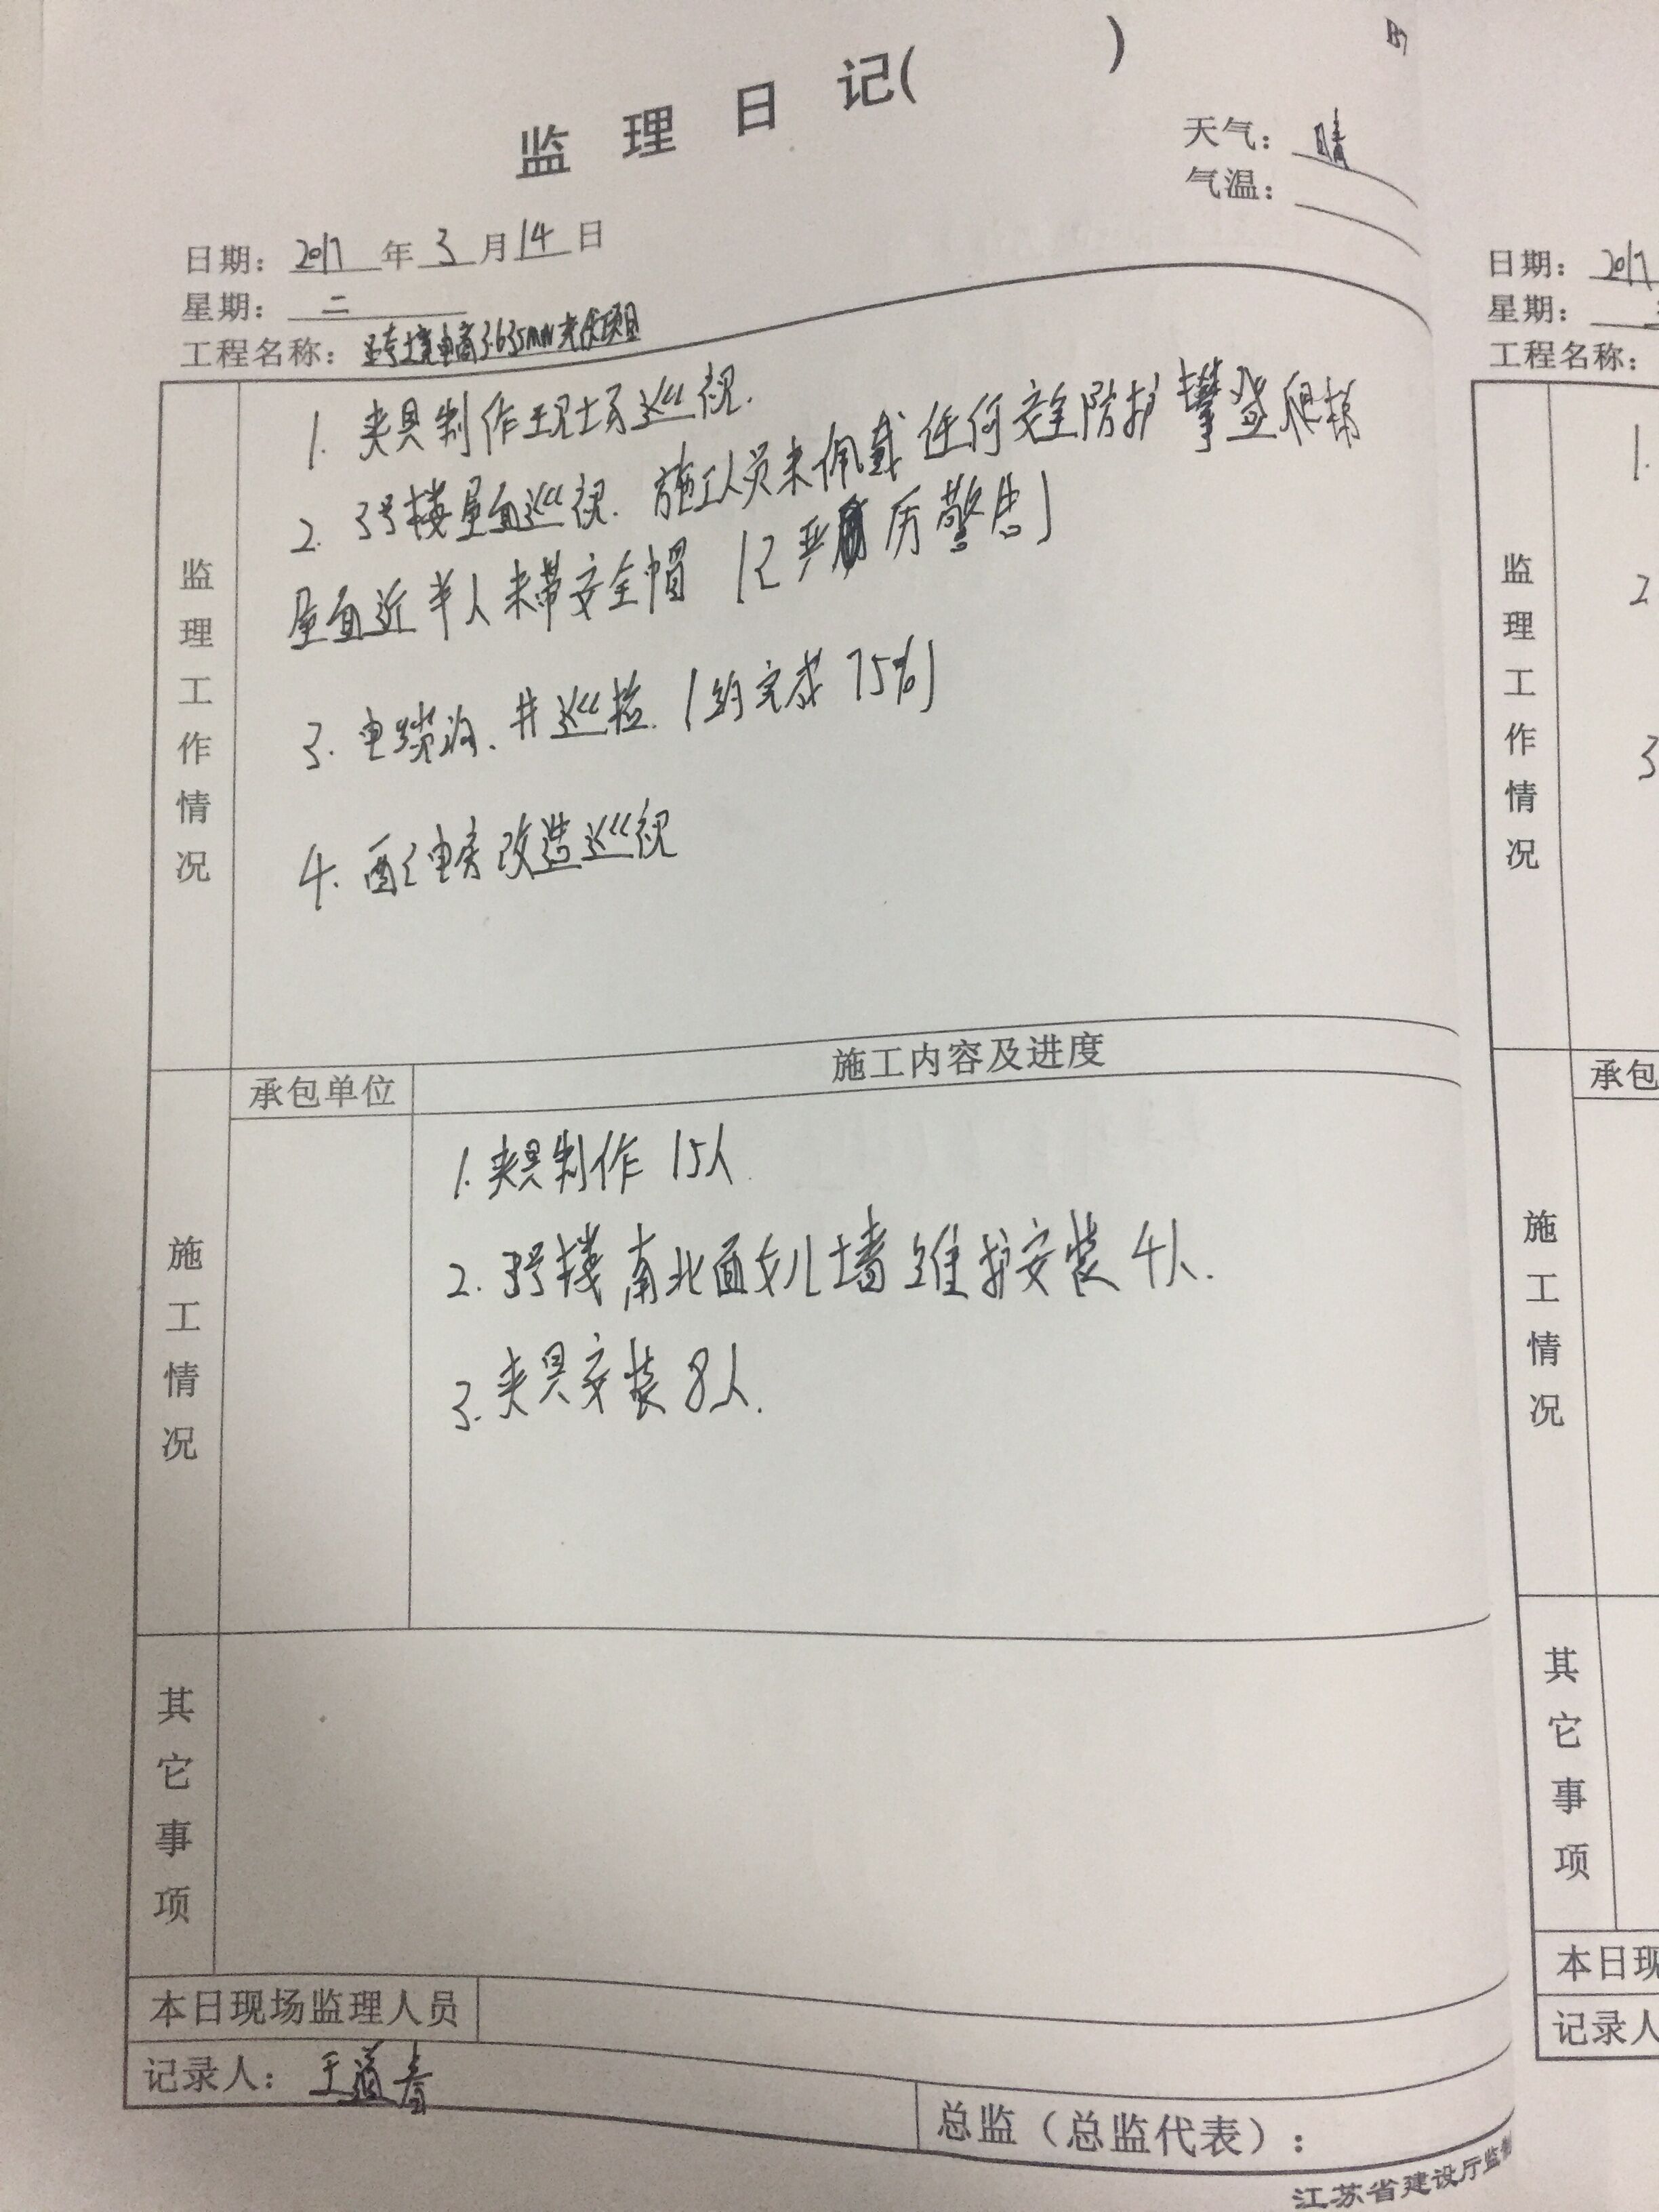 监理日记( )
B7
天气: 晴
气温:
日期: 2017 年 3 月 14 日
星期: 二
工程名称: 电商3.635MW光伏项目
监理工作情况
1. 夹具制作现场巡视.
2. 3号楼屋面巡视. 施工人员未佩戴任何安全防护攀登爬梯
屋面近半人未带安全帽 (已严厉警告)
3. 电缆沟、井巡检. (约完成 75%)
4. 配电房改造巡视
施工情况
承包单位
施工内容及进度
1. 夹具制作 15人
2. 3号楼南北面女儿墙维护安装 4人.
3. 夹具安装 8人.
其它事项
本日现场监理人员
记录人: 王道春
总监（总监代表）:
江苏省建设厅监制
日期: 2017
星期:
工程名称:
监理工作情况
1.
2
3
承包
施工情况
其它事项
本日现
记录人